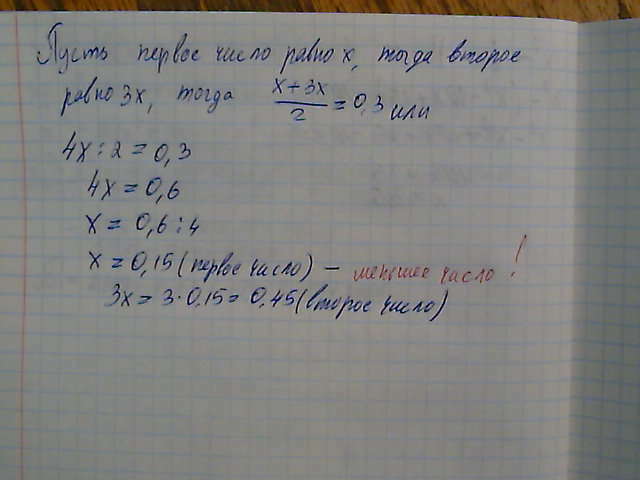 Пусть первое число равно x, тогда второе
равно 3x, тогда (x+3x)/2 = 0,3 или
4x : 2 = 0,3
4x = 0,6
x = 0,6 : 4
x = 0,15 (первое число) – меньшее число!
3x = 3·0,15 = 0,45 (второе число)